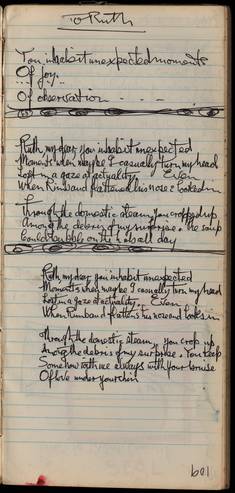 To Ruth
You inhabit unexpected moments
Of joy.
Of observation - - -
Ruth my dear, you inhabit unexpected
Moments when maybe I casually turn my head
Lost in a gaze of actuality. Even
When Rimbaud flattened his nose & looked in
Through the domestic steam, you cropped up
Among the debris of my surprise. The soup
Could bubble on the hob all day
Ruth my dear you inhabit unexpected
Moments when maybe I casually turn my head
Lost in a gaze of actuality. Even
When Rimbaud flattens his nose and looks in
Through the domestic steam, you crop up
Among the debris of my surprise. You keep
Somehow with me always with your
Of love under your chin